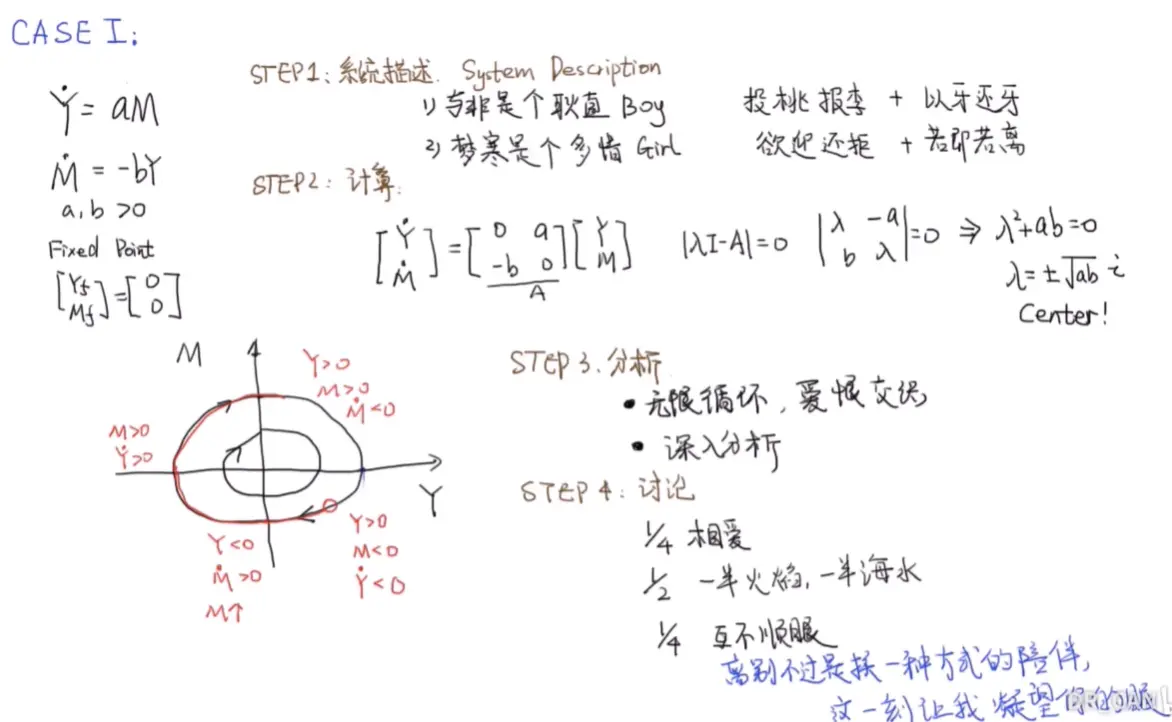 CASE I:
Ẏ = aM
Ṁ = -bY
a, b >0
Fixed Point
[Yf Mf] = [0 0]
STEP1: 系统描述. System Description
1) 与非是个耿直 Boy 投桃报李 + 以牙还牙
2) 梦寒是个多情 Girl 欲迎还拒 + 若即若离
STEP2: 计算:
[Ẏ Ṁ] = [0 a -b 0] [Y M] |λI-A|=0 |λ -a b λ|=0 ⇒ λ²+ab=0
A
λ=±√ab i
Center!
M
Y>0
M>0
Ṁ<0
M>0
Ẏ>0
Y
Y<0
Ṁ>0
M↑
Y>0
M<0
Ẏ<0
STEP 3. 分析
• 无限循环, 爱恨交织
• 深入分析
STEP 4: 讨论
1/4 相爱
1/2 一半火焰, 一半海水
1/4 互不顺眼
离别不过是换一种方式的陪伴,
这一刻让我凝望你的眼